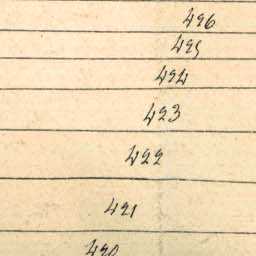 426
425
424
423
422
421
420